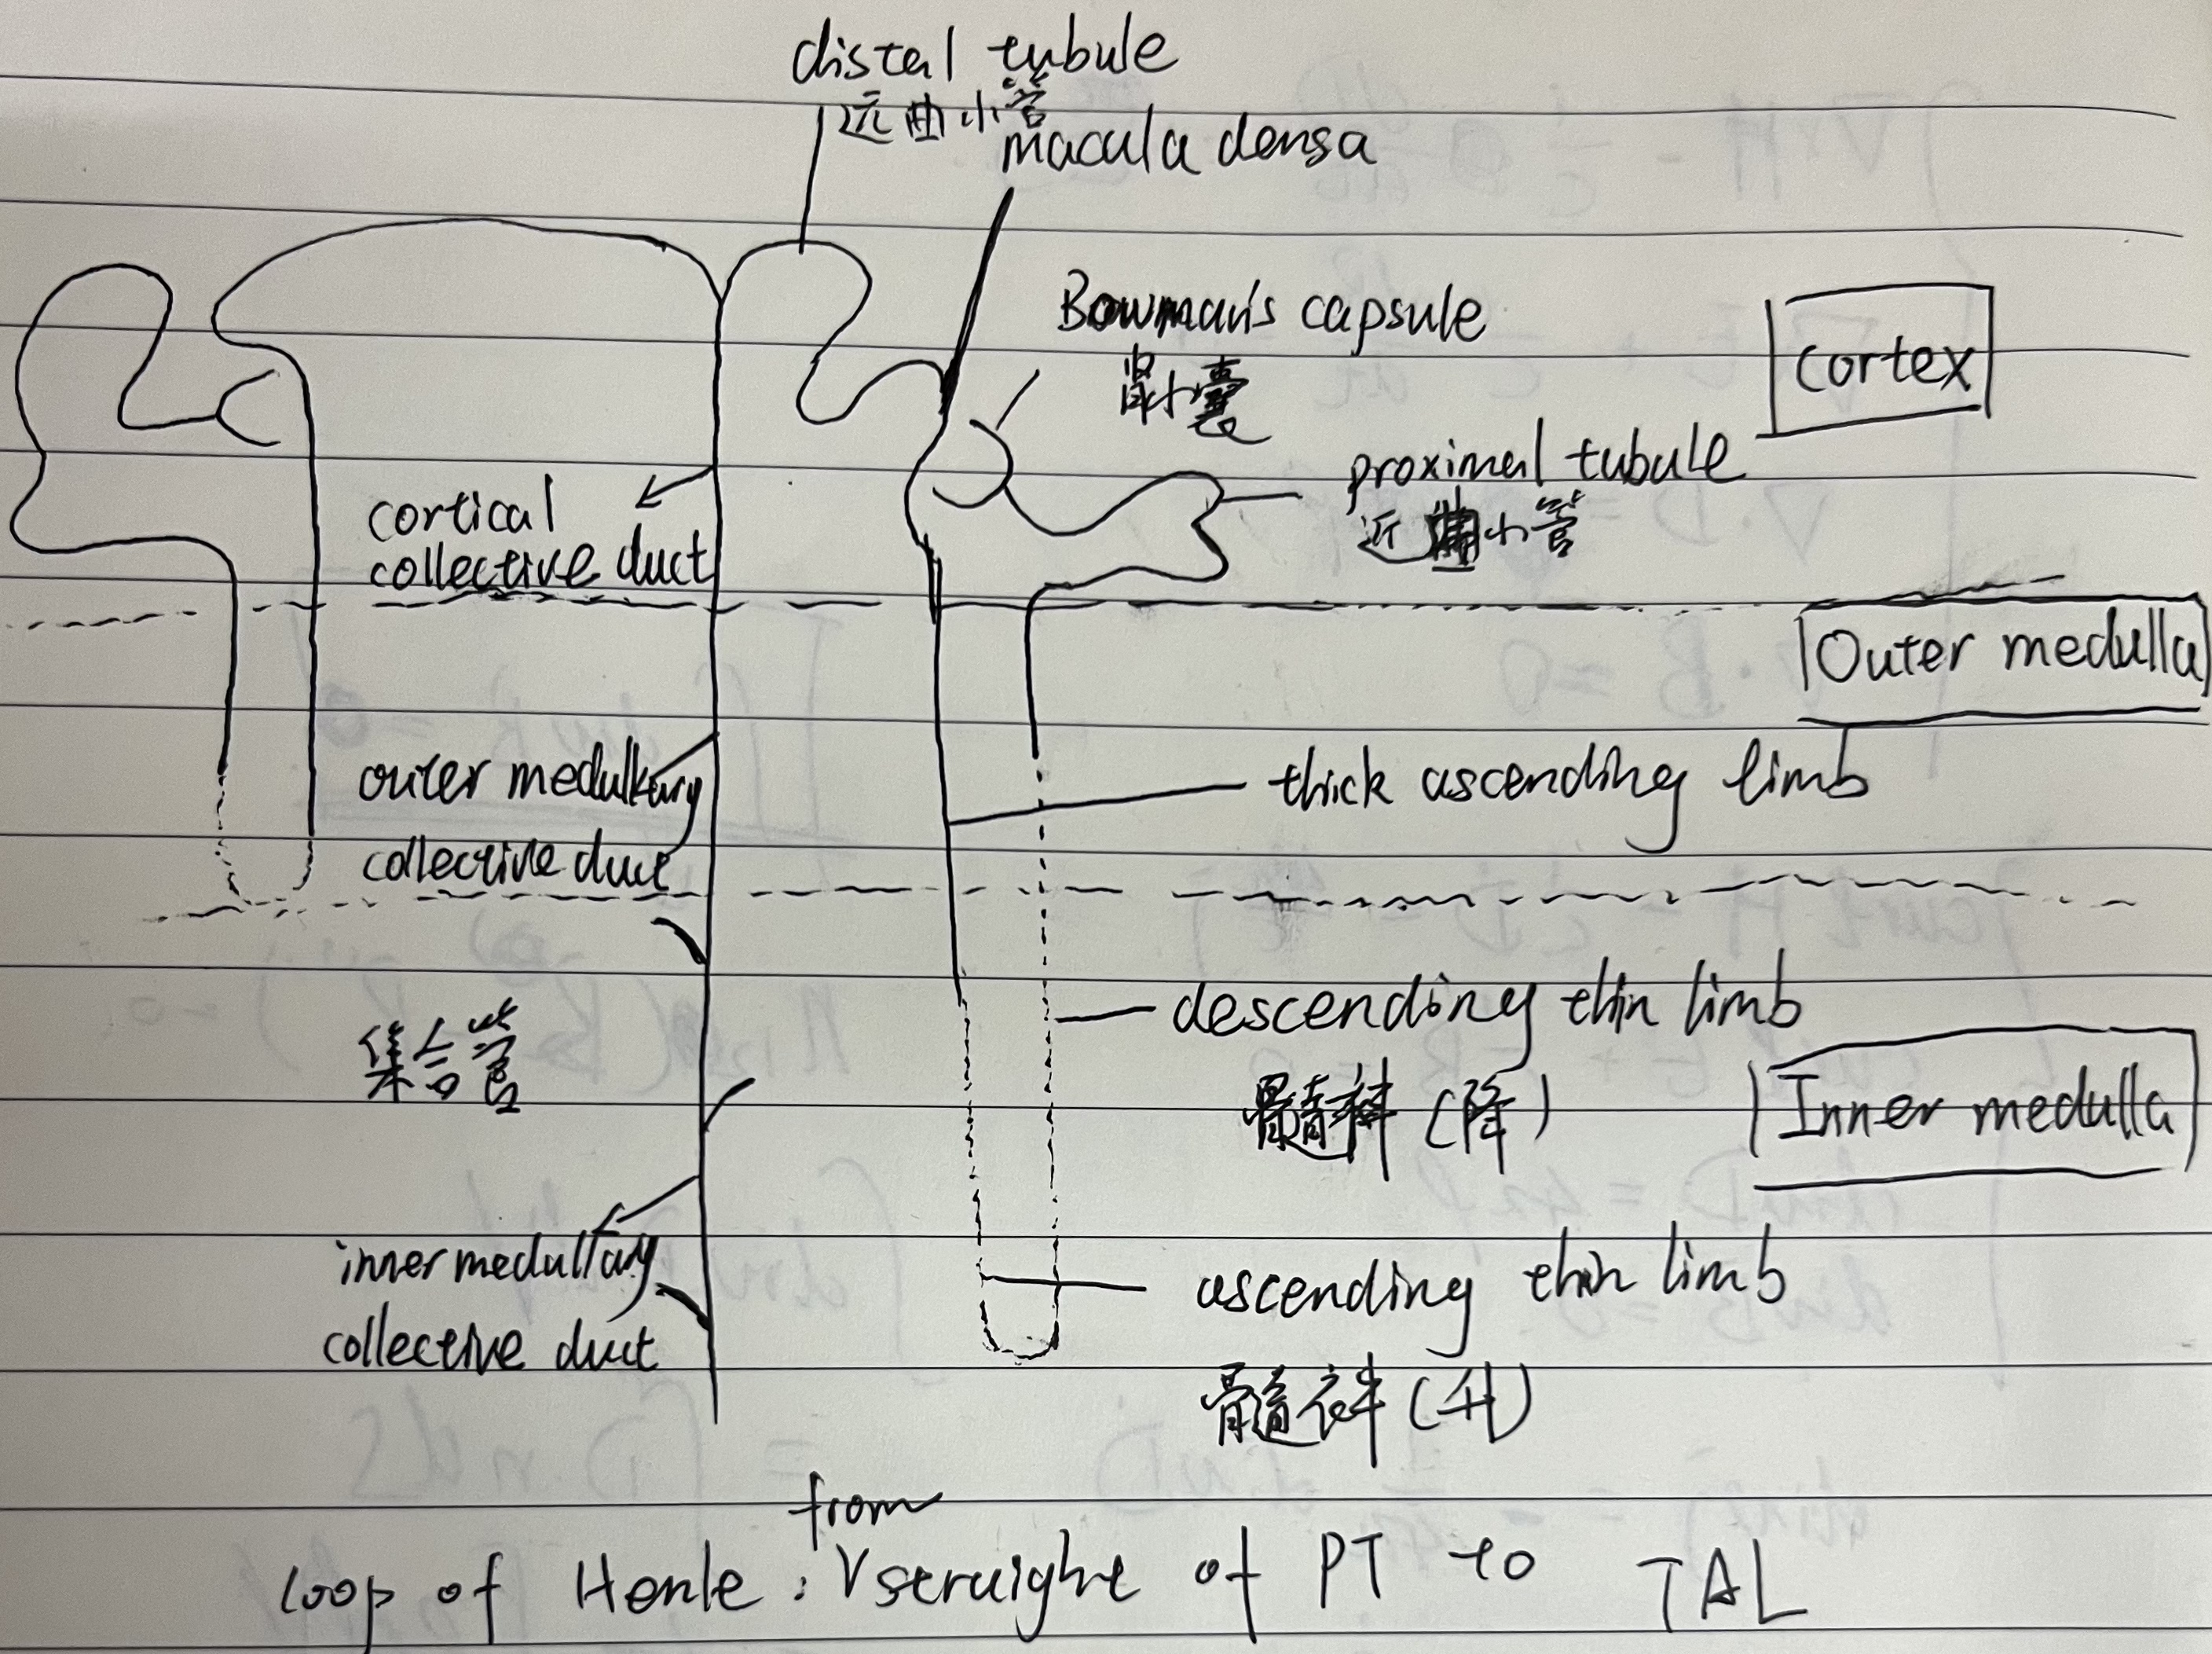 distal tubule
远曲小管
macula densa
Bowman's capsule
肾小囊
cortex
proximal tubule
近曲小管
cortical
collective duct
Outer medulla
outer medullary
collective duct
thick ascending limb
descending thin limb
髓袢(降)
集合管
Inner medulla
inner medullary
collective duct
ascending thin limb
髓袢(升)
from
loop of Henle : V straight of PT to TAL